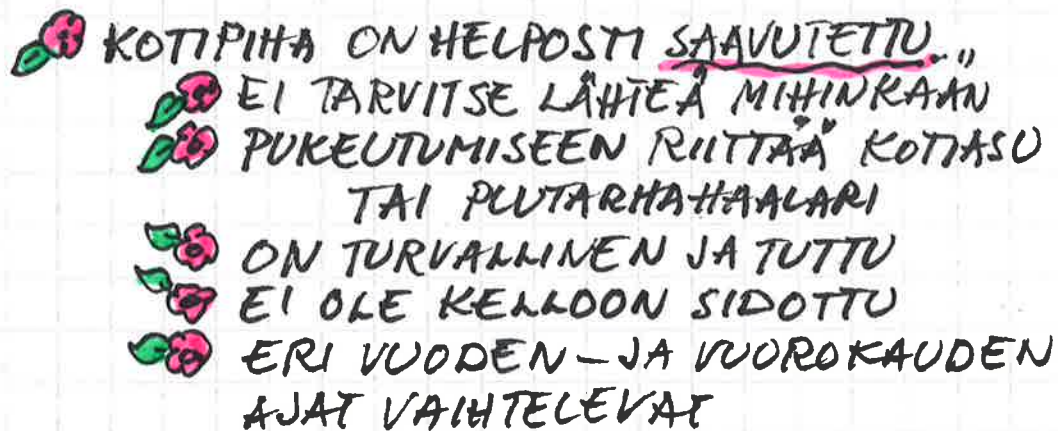 KOTIPIHA ON HELPOSTI SAAVUTETTU...
EI TARVITSE LÄHTEÄ MIHINKÄÄN
PUKEUTUMISEEN RIITTÄÄ KOTIASU
TAI PUUTARHAHAALARI
ON TURVALLINEN JA TUTTU
EI OLE KELLOON SIDOTTU
ERI VUODEN- JA VUOROKAUDEN
AJAT VAIHTELEVAT